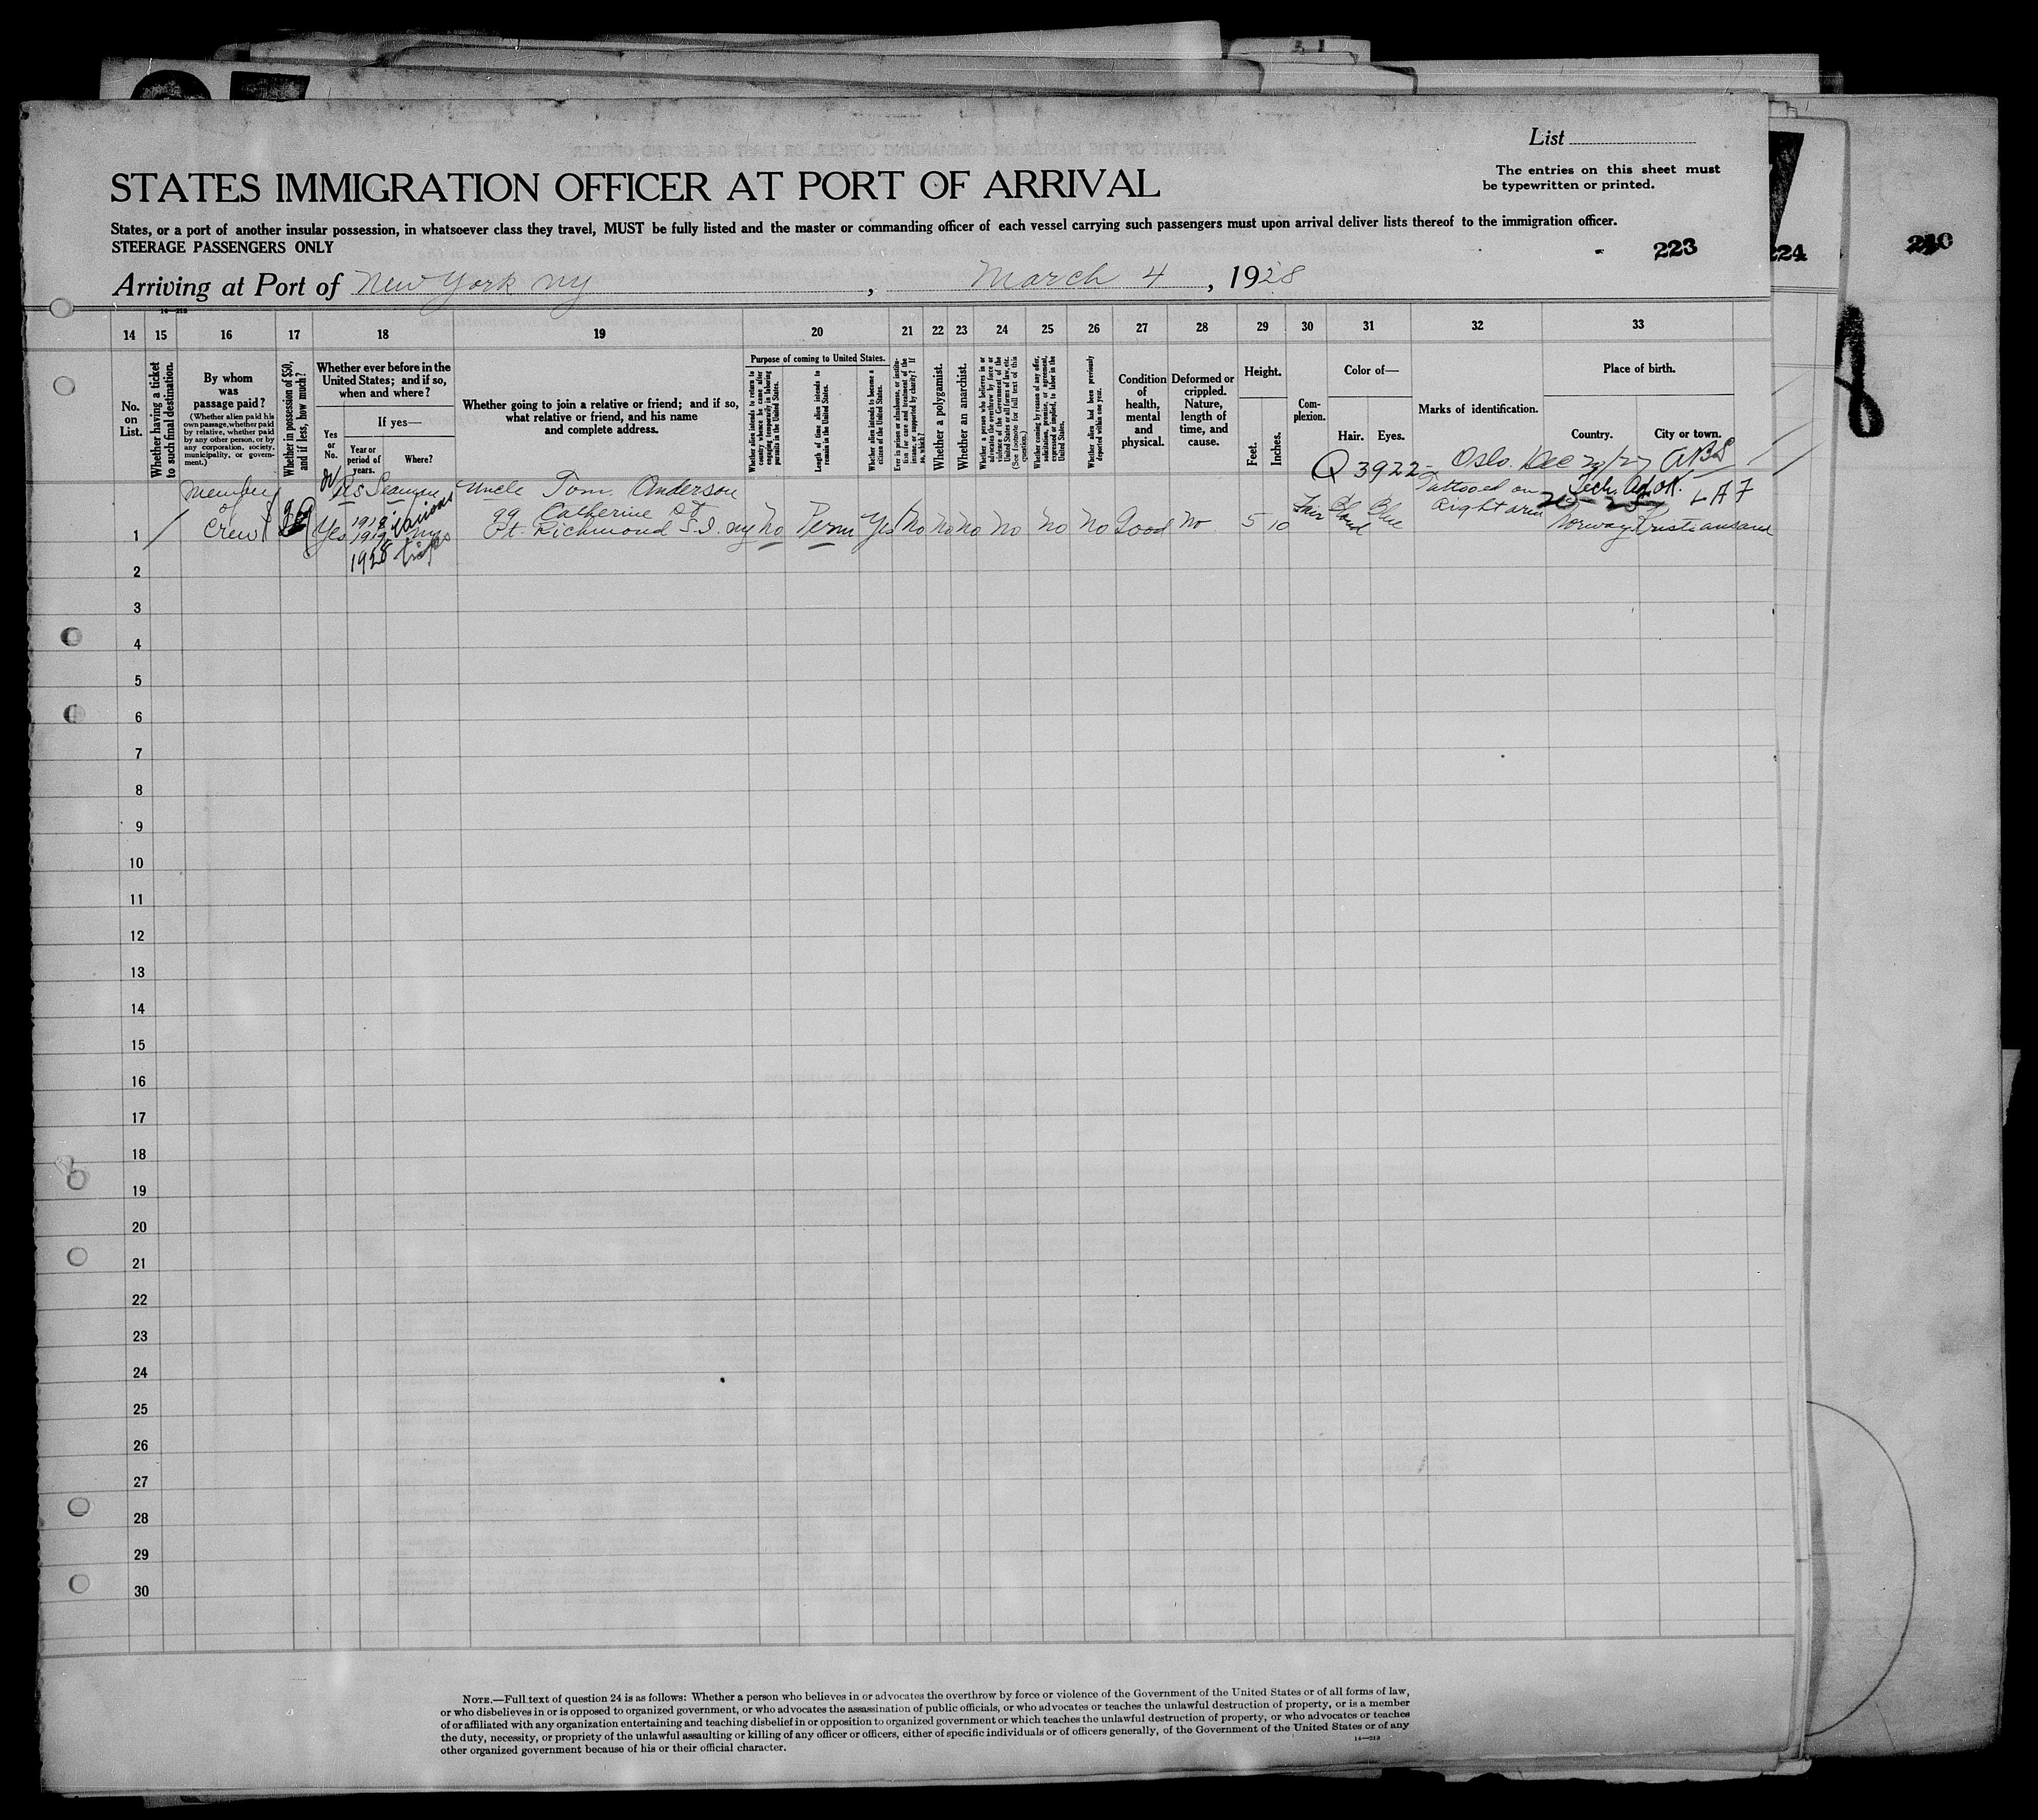 List
The entries on this sheet must
be typewritten or printed.
STATES IMMIGRATION OFFICER AT PORT OF ARRIVAL
States, or a port of another insular possession, in whatsoever class they travel, MUST be fully listed and the master or commanding officer of each vessel carrying such passengers must upon arrival deliver lists thereof to the immigration officer.
STEERAGE PASSENGERS ONLY
223
224
Arriving at Port of New York NY, March 4, 1928
14 15 16 17 18 19 20 21 22 23 24 25 26 27 28 29 30 31 32 33
No. on List.
Whether having a ticket to such final destination.
By whom was passage paid?
(Whether alien paid his own passage, whether paid by relative, whether paid by any other person, or by any corporation, society, municipality, or government.)
Whether in possession of $50, and if less, how much?
Whether ever before in the United States; and if so, when and where?
Yes or No.
If yes—
Year or period of years.
Where?
Whether going to join a relative or friend; and if so, what relative or friend, and his name and complete address.
Purpose of coming to United States.
Whether alien intends to return to country whence he came after engaging temporarily in laboring pursuits in the United States.
Length of time alien intends to remain in the United States.
Whether alien intends to become a citizen of the United States.
Ever in prison or almshouse, or institution for care and treatment of the insane, or supported by charity? If so, which?
Whether a polygamist.
Whether an anarchist.
Whether a person who believes in or advocates the overthrow by force or violence of the Government of the United States or all forms of law, etc. (See footnote for full text of this question.)
Whether coming by reason of any offer, solicitation, promise, or agreement, expressed or implied, to labor in the United States.
Whether alien had been previously deported within one year.
Condition of health, mental and physical.
Deformed or crippled. Nature, length of time, and cause.
Height.
Feet.
Inches.
Complexion.
Color of—
Hair. Eyes.
Marks of identification.
Place of birth.
Country. City or town.
Q 3922 Oslo. Dec 27
Member of Crew
As Seaman
Uncle Tom Anderson
Tattooed on
Right arm
L A F
1 Yes 1918 1919 NY various trips 1928
99 Catherine St
Pt. Richmond S.I. NY
No Perm Yes No No No No No No Good No 5 10 Fair Blond Blue Norway Kristiansand
2
3
4
5
6
7
8
9
10
11
12
13
14
15
16
17
18
19
20
21
22
23
24
25
26
27
28
29
30
NOTE.—Full text of question 24 is as follows: Whether a person who believes in or advocates the overthrow by force or violence of the Government of the United States or of all forms of law,
or who disbelieves in or is opposed to organized government, or who advocates the assassination of public officials, or who advocates or teaches the unlawful destruction of property, or is a member
of or affiliated with any organization entertaining and teaching disbelief in or opposition to organized government or which teaches the unlawful destruction of property, or who advocates or teaches
the duty, necessity, or propriety of the unlawful assaulting or killing of any officer or officers, either of specific individuals or of officers generally, of the Government of the United States or of any
other organized government because of his or their official character.
14—213